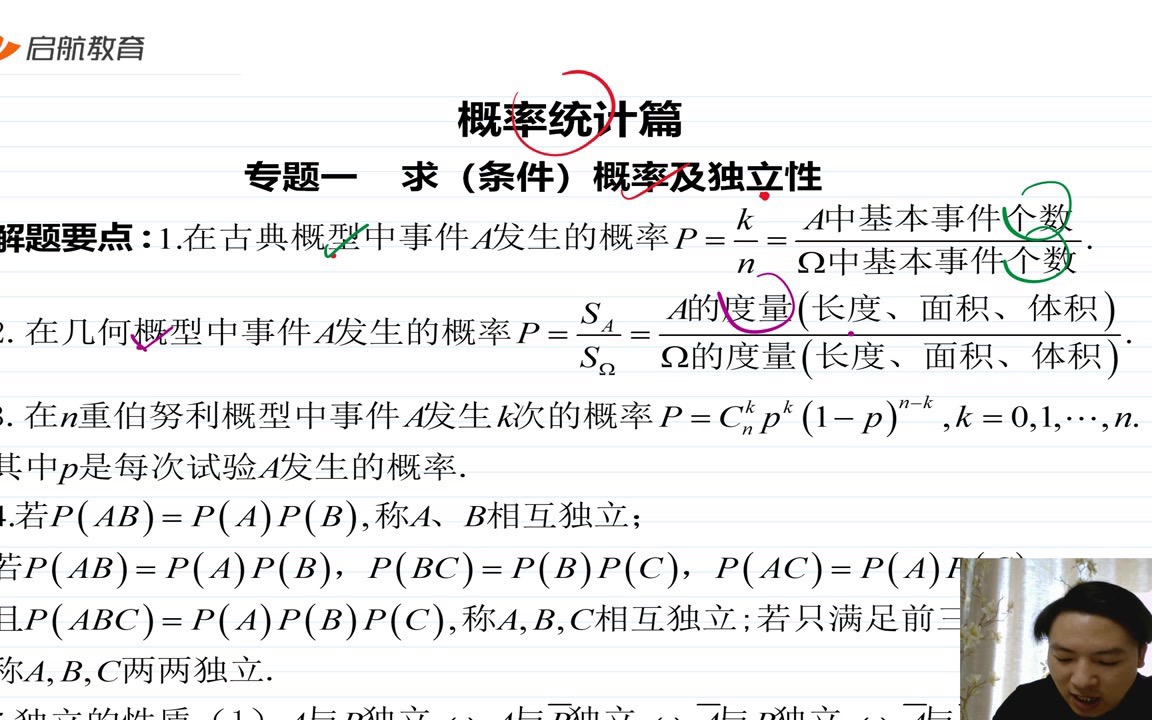 启航教育
概率统计篇
专题一 求（条件）概率及独立性
解题要点：1.在古典概型中事件A发生的概率P = k/n = A中基本事件个数/Ω中基本事件个数.
2. 在几何概型中事件A发生的概率P = S_A/S_Ω = A的度量(长度、面积、体积)/Ω的度量(长度、面积、体积).
3. 在n重伯努利概型中事件A发生k次的概率P = C_n^k p^k (1 − p)^{n−k}, k = 0,1,⋯,n.
其中p是每次试验A发生的概率.
4.若P(AB) = P(A)P(B),称A、B相互独立；
若P(AB) = P(A)P(B)，P(BC) = P(B)P(C)，P(AC) = P(A)
且P(ABC) = P(A)P(B)P(C),称A,B,C相互独立；若只满足前三
称A,B,C两两独立.
独立的性质（1）